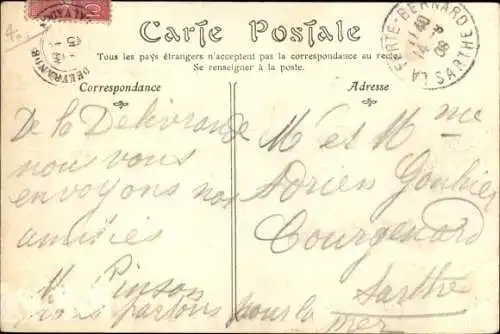 Carte Postale
Tous les pays étrangers n'acceptent pas la correspondance au recto
Se renseigner à la poste.
Correspondance
Adresse
De la Délivrande
nous vous
envoyons nos
amitiés
M. Pinson
nous partons pour la mer
M et Mme
Adrien Gouhier
Courgenard
Sarthe
LA FERTE-BERNARD
SARTHE